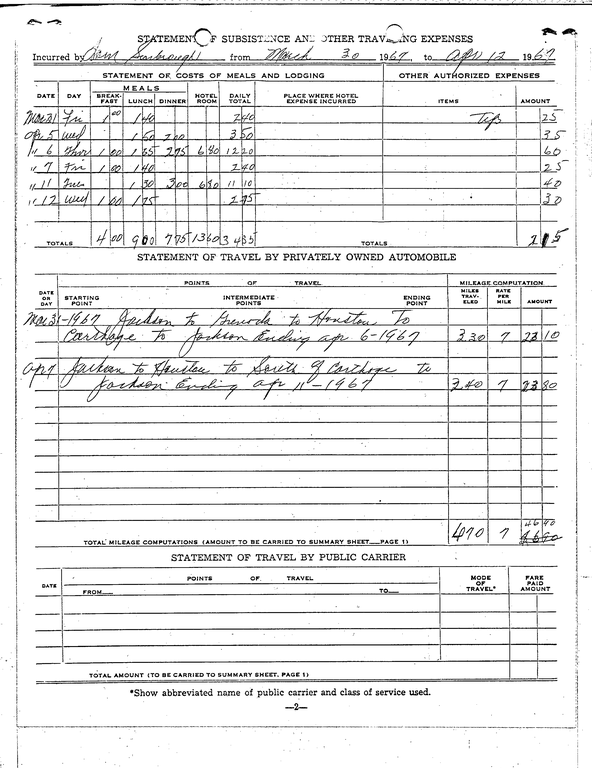 STATEMENT OF SUBSISTENCE AND OTHER TRAVELING EXPENSES
Incurred by Tom Scarbrough from March 30 1967 to Apr 12 1967
STATEMENT OF COSTS OF MEALS AND LODGING OTHER AUTHORIZED EXPENSES
DATE DAY MEALS BREAK-FAST LUNCH DINNER HOTEL ROOM DAILY TOTAL PLACE WHERE HOTEL EXPENSE INCURRED ITEMS AMOUNT
Mar 31 Fri 1 00 1 40 2 40 Tips 25
Apr 5 Wed 1 50 2 00 3 50 35
" 6 Thur 1 00 1 65 2 75 6 80 12 20 60
" 7 Fri 1 00 1 40 2 40 25
" 11 Tue 1 30 3 00 6 80 11 10 40
" 12 Wed 1 00 1 75 2 75 30
TOTALS 4 00 9 00 7 75 13 60 34 35 TOTALS 2 15
STATEMENT OF TRAVEL BY PRIVATELY OWNED AUTOMOBILE
POINTS OF TRAVEL MILEAGE COMPUTATION
DATE OR DAY STARTING POINT INTERMEDIATE POINTS ENDING POINT MILES TRAV-ELED RATE PER MILE AMOUNT
Mar 31-1967 Jackson to Grenada to Houston To
Carthage to Jackson Ending Apr 6-1967 330 7 23 10
Apr 7 Jackson to Houston to South of Carthage to
Jackson Ending Apr 11-1967 340 7 23 80
46 90
TOTAL MILEAGE COMPUTATIONS (AMOUNT TO BE CARRIED TO SUMMARY SHEET PAGE 1) 670 7
STATEMENT OF TRAVEL BY PUBLIC CARRIER
DATE POINTS OF TRAVEL MODE OF TRAVEL* FARE PAID AMOUNT
FROM TO
TOTAL AMOUNT (TO BE CARRIED TO SUMMARY SHEET. PAGE 1)
*Show abbreviated name of public carrier and class of service used.
—2—